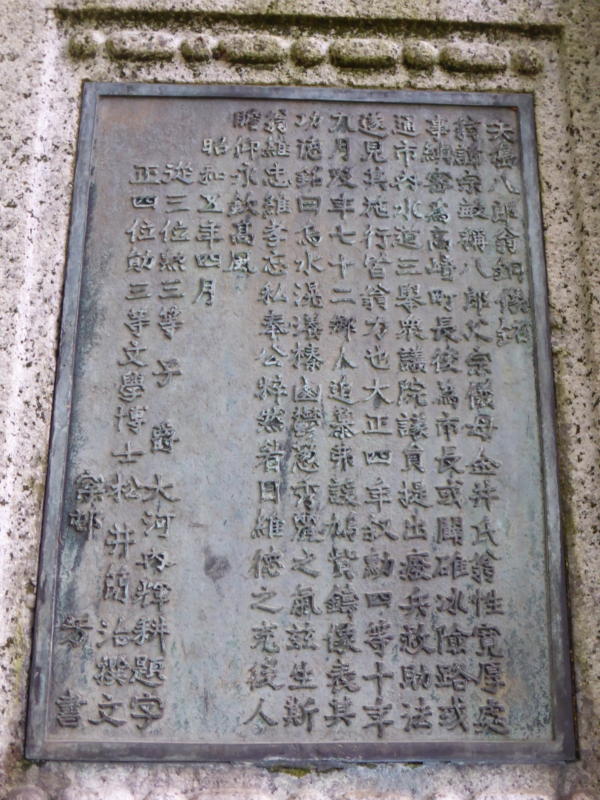 矢島八郎翁銅像銘
翁諱宗敏稱八郎父宗儀母金井氏翁性寛厚處
事縝密為高崎町長後為市長或開碓冰險路或
通市內水道三擧衆議院議員提出癈兵救助法
遂見其施行皆翁力也大正四年敍勳四等十年
九月歿年七十二鄉人追慕弗諼鳩貲鑄像表其
功德銘曰烏水滉瀁榛山鬱葱秀麗之氣玆生斯
翁維忠維孝忘私奉公粹然者目維德之充後人
瞻仰永欽高風
昭和五年四月
從三位勲三等子爵大河內輝耕題字
正四位勲三等文學博士松井簡治撰文
書